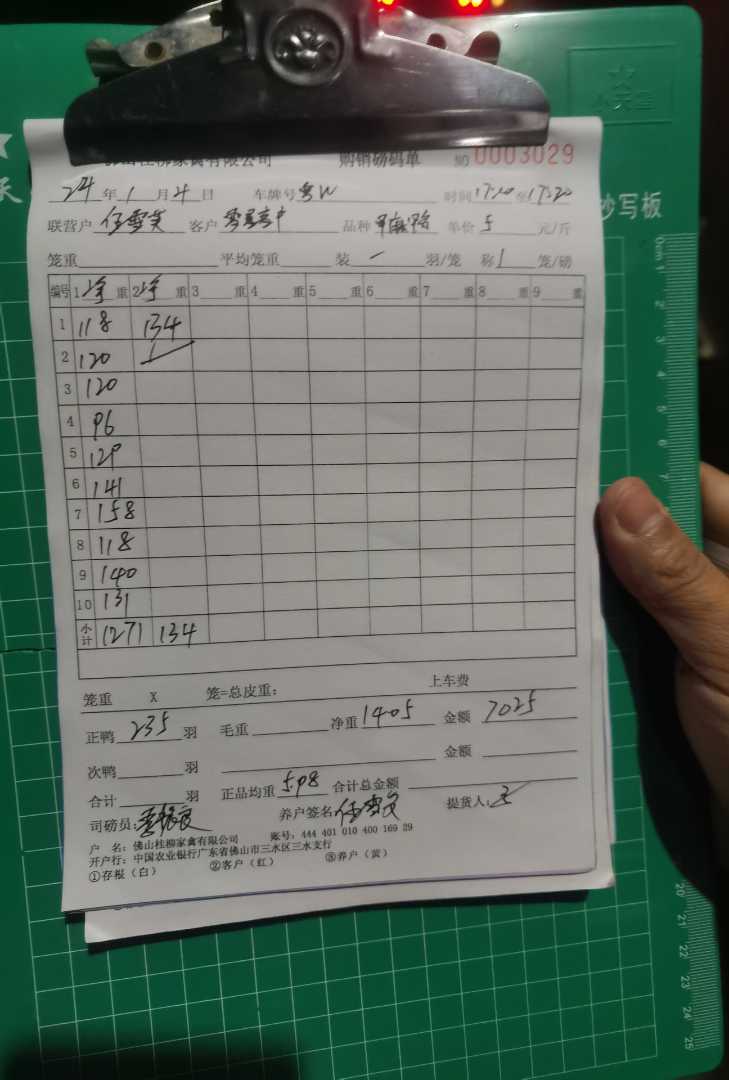 佛山桂柳家禽有限公司 购销磅码单 NO 0003029
24年1月4日 车牌号粤W 时间17:10至17:20
抄写板
联营户 伍雪英 客户 品种 单价 5 元/斤
笼重 平均笼重 装 一 羽/笼 称 1 笼/磅
编号 1 净 重 2 净 重 3 重 4 重 5 重 6 重 7 重 8 重 9 重
1 118 134
2 120
3 120
4 96
5 129
6 141
7 158
8 118
9 140
10 131
小计 1271 134
笼重 X 笼=总皮重: 上车费
正鸭 235 羽 毛重 净重 1405 金额 7025
次鸭 羽 金额
合计 羽 正品均重 5.98 合计总金额
司磅员: 养户签名: 伍雪英 提货人:
户 名: 佛山桂柳家禽有限公司 账号: 444 401 010 400 169 29
开户行: 中国农业银行广东省佛山市三水区三水支行
①存根（白） ②客户（红） ③养户（黄）
0cm 1 2 3 4 5 6 7
20 21 22 23 24 25